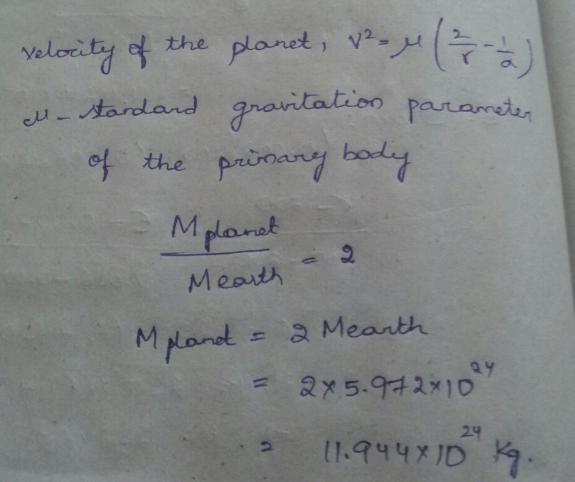 Velocity of the planet, V² = μ (2/r - 1/a)
μ - standard gravitation parameter
of the primary body
M planet / M earth = 2
M planet = 2 Mearth
= 2 × 5.972 × 10²⁴
= 11.944 × 10²⁴ Kg.